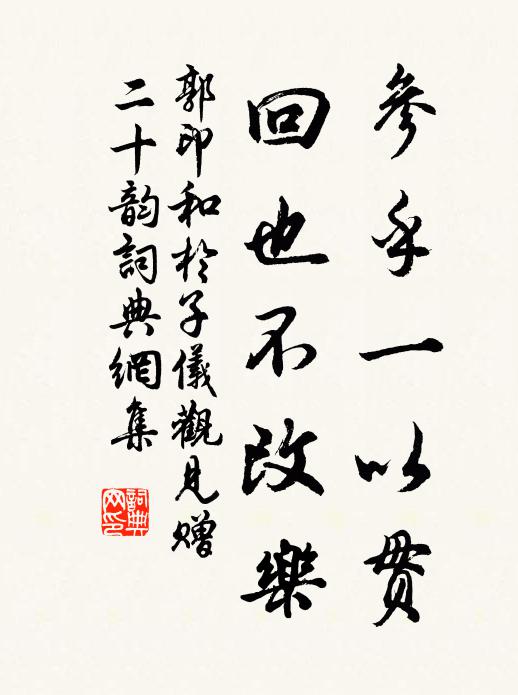 參乎一以贯
回也不改樂
郭印和於子儀觀見赠
二十韵詞典網集
詞典网印